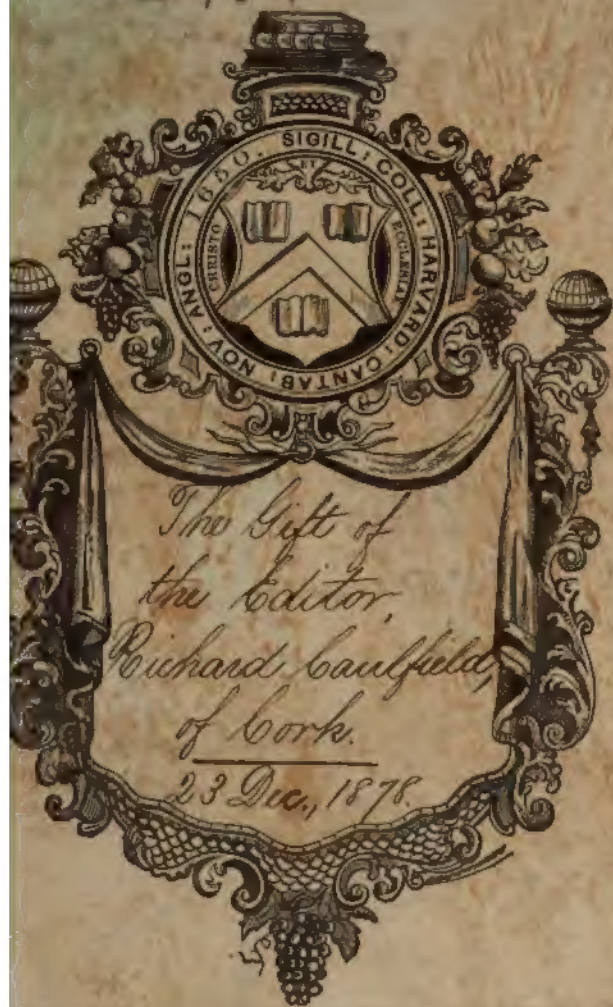 SIGILL: COLL: HARVARD: CANTAB: NOV: ANGL: 1650.
ET
CHRISTO
ECCLESIÆ
The Gift of
the Editor,
Richard Caulfield,
of Cork.
23 Dec., 1878.